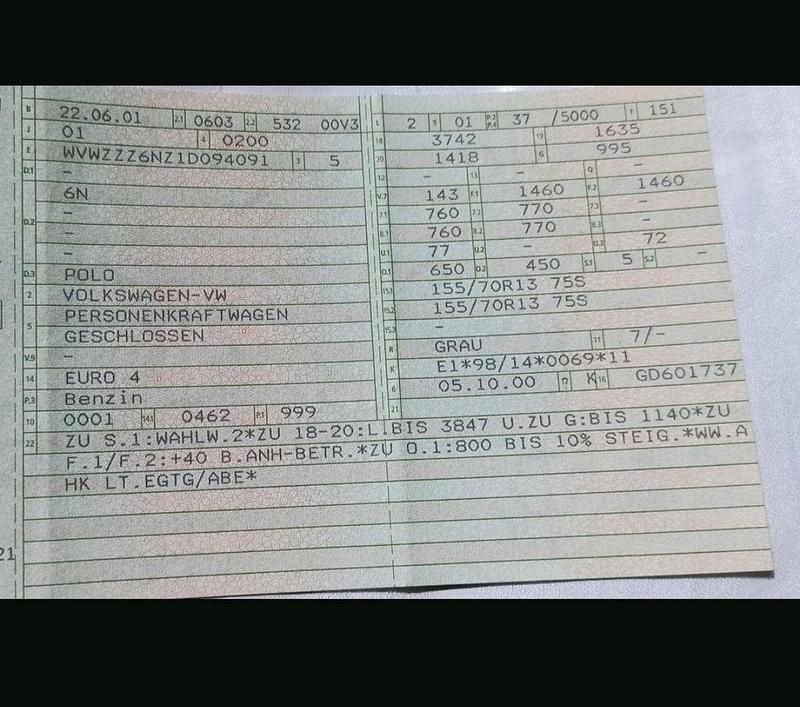 B 22.06.01 2.1 0603 2.2 532 00V3
J 01 4 0200
E WVWZZZ6NZ1D094091 3 5
D.1 –
6N
–
D.2 –
–
D.3 POLO
2 VOLKSWAGEN-VW
PERSONENKRAFTWAGEN
5 GESCHLOSSEN
V.9 –
14 EURO 4
P.3 Benzin
10 0001 14.1 0462 P.1 999
L 2 9 01 P.2 P.4 37 /5000 T 151
18 3742 19 1635
20 1418 G 995
12 – 13 – Q –
V.7 143 F.1 1460 F.2 1460
7.1 760 7.2 770 7.3 –
8.1 760 8.2 770 8.3 –
U.1 77 U.2 – U.3 72
O.1 650 O.2 450 S.1 5 S.2 –
15.1 155/70R13 75S
15.2 155/70R13 75S
15.3 –
R GRAU 11 7/–
K E1*98/14*0069*11
6 05.10.00 17 K 16 GD601737
21
22 ZU S.1:WAHLW.2*ZU 18-20:L.BIS 3847 U.ZU G:BIS 1140*ZU
F.1/F.2:+40 B.ANH-BETR.*ZU O.1:800 BIS 10% STEIG.*WW.A
HK LT.EGTG/ABE*
21